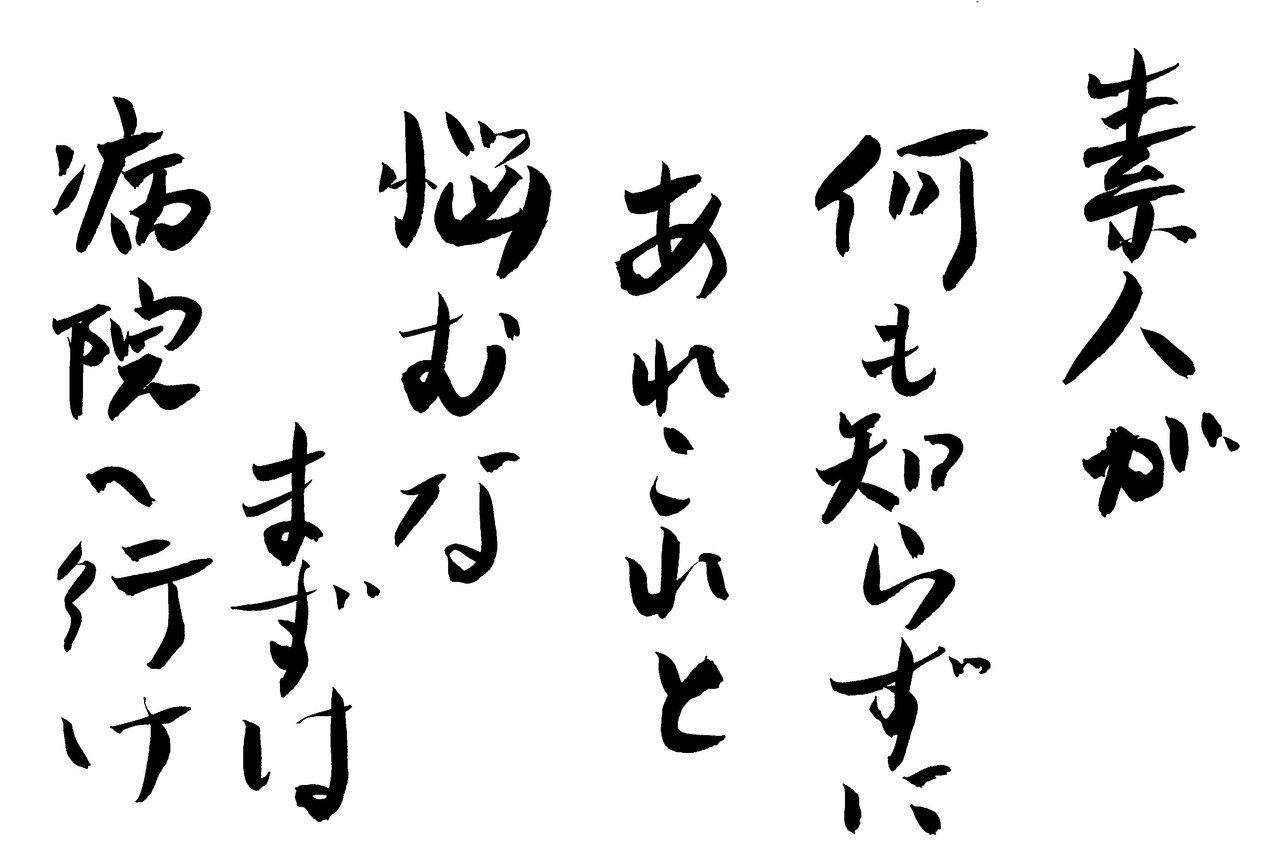 素人が
何も知らずに
あれこれと
悩むな
まずは
病院へ行け